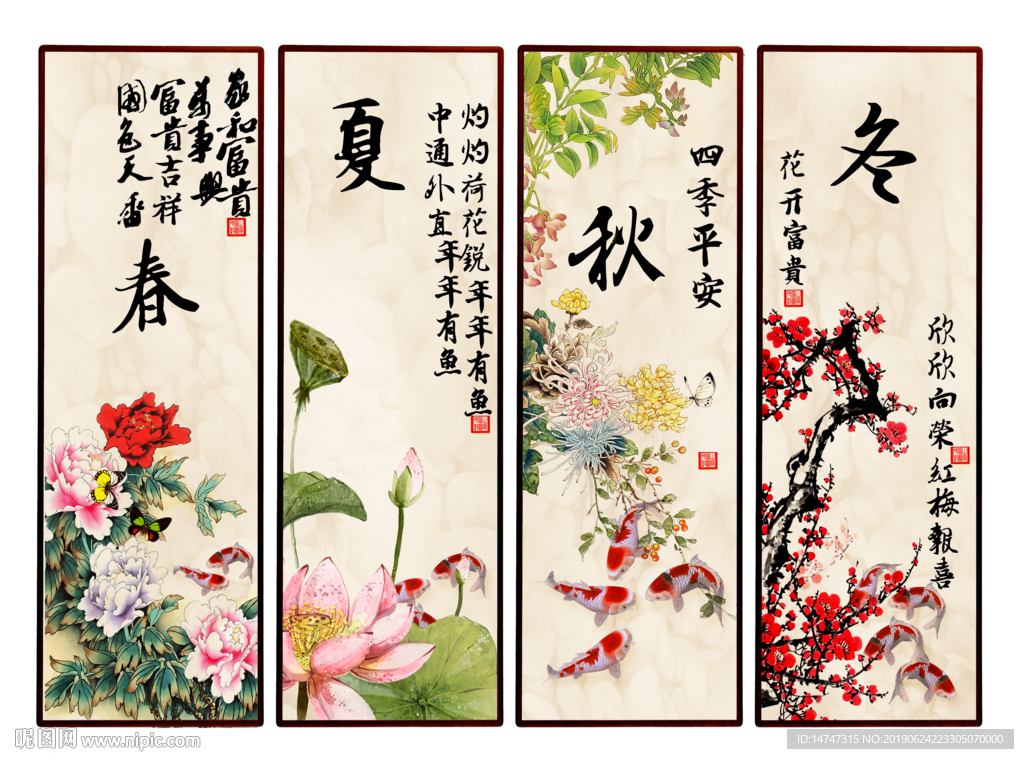 家和富贵
万事兴
富贵吉祥
國色天香
春
夏
灼灼荷花锐年年有魚
中通外直年年有魚
四季平安
秋
冬
花开富貴
欣欣向榮红梅報喜
昵图网 www.nipic.com
ID:14747315 NO:20190624223305070000